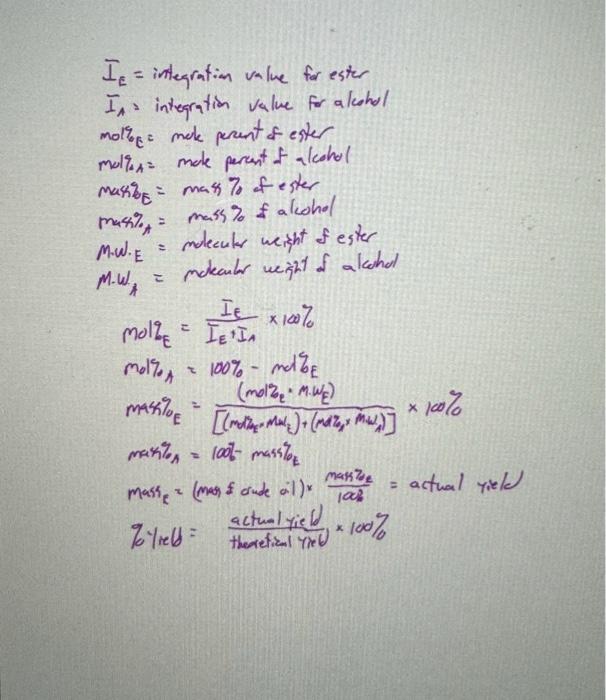 I_E = integration value for ester
I_A = integration value for alcohol
mol%_E = mole percent of ester
mol%_A = mole percent of alcohol
mass%_E = mass % of ester
mass%_A = mass % of alcohol
M.W._E = molecular weight of ester
M.W._A = molecular weight of alcohol
mol%_E = I_E / (I_E + I_A) × 100%
mol%_A = 100% - mol%_E
mass%_E = (mol%_E · M.W_E) / [(mol%_E · M.W_E) + (mol%_A · M.W_A)] × 100%
mass%_A = 100% - mass%_E
mass_E = (mass of crude oil) × mass%_E / 100% = actual yield
% Yield = actual yield / theoretical yield × 100%